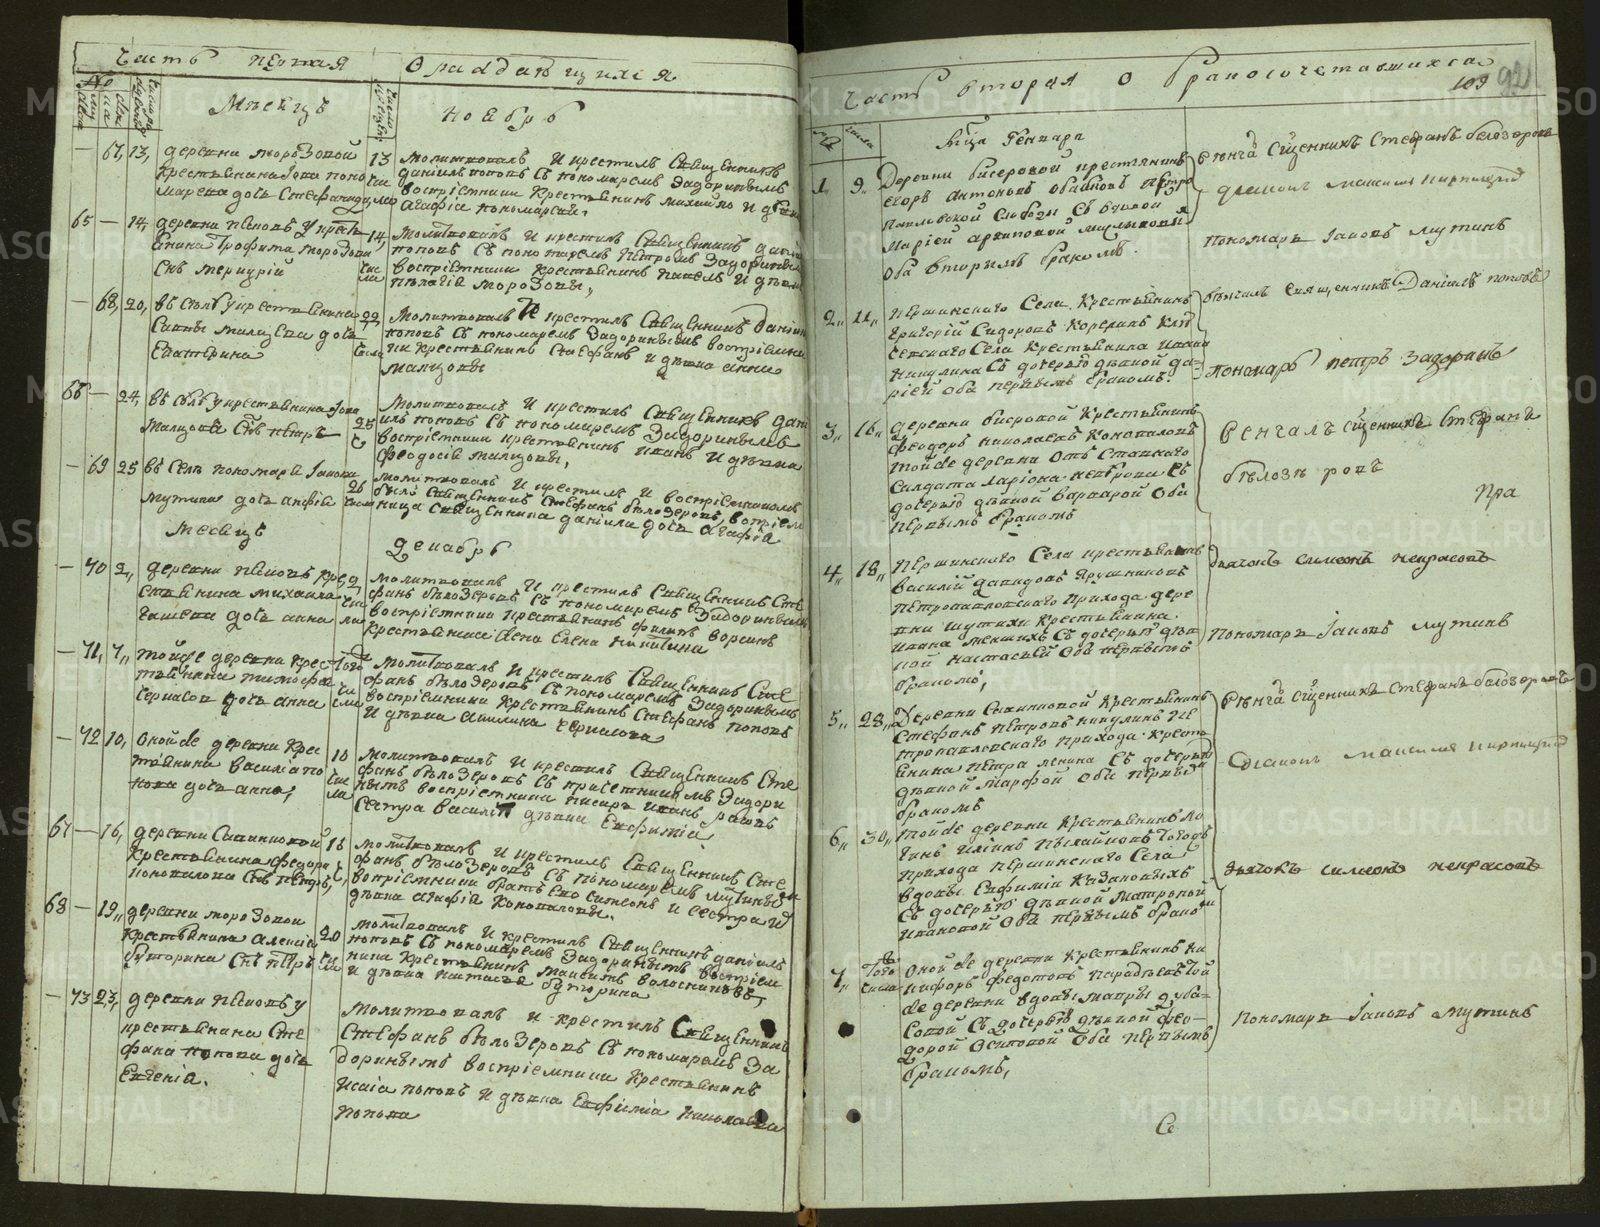 Часть первая О раждавшихся
Мѣсецъ Ноябрь
67, 13, деревни морозовой
крестьянина Іова попо
марева дочь Стефанида
13 Молитвовалъ И крестилъ Священникъ
данiилъ поповъ Съ пономаремъ Задоринымъ
воспрiемники Крестьянинъ михайло И дѣвка
Агафiа пономарева,
65 — 14, деревни пѣновъ У крест
янина Трофима морозова
Снъ меркурiй
14, Молитвовалъ И крестилъ Священникъ данiилъ
поповъ Съ пономаремъ Петромъ Задоринымъ
воспрiемники крестьянинъ павелъ И дѣвка
пелагiя морозовы,
— 68, 20, въ Селѣ У крестьянина
Саввы малцова дочь
Екатерина
22, Молитвовалъ И крестилъ Священникъ Данiилъ
поповъ Съ пономаремъ Задоринымъ воспрiемни
ки крестьянинъ Стефанъ и дѣвка анна
малцовы
66 — 24, въ Селѣ У крестьянина Іова
Малцова Снъ петръ
25 Молитвовалъ И крестилъ Священникъ дані
илъ поповъ Съ пономаремъ Задоринымъ
воспрiемники крестьянинъ иванъ И дѣвка
феодосiя малцовы,
— 69 25 въ Селѣ пономаря Іакова
мутина дочь анфiса
26 молитвовалъ И крестилъ И воспрiемникомъ
былъ Священникъ Стефанъ бѣлозеровъ, воспрiем
ница Священника данiила дочь Агафiя
Месецъ Декабрь
— 70 2, деревни пѣновъ кре
стьянина михаила
дочь анна
2, молитвовалъ И крестилъ Священникъ Сте
фанъ бѣлозеровъ Съ пономаремъ Задоринымъ
воспрiемники крестьянинъ филипъ ворсинъ
Крестьянская жена Елена никитина
— 71, 7, тойже деревни крес
тьянина тимофея
черпасова дочь анна
Того числа молитвовалъ И крестилъ Священникъ Сте
фанъ бѣлозеровъ Съ пономаремъ Задоринымъ
воспрiемники Крестьянинъ Стефанъ поповъ
И дѣвка акилина черпасова
— 72 10, Онойже деревни крес
тьянина василiа по
пова дочь анна,
10 Молитвовалъ И крестилъ Священникъ Сте
фанъ бѣлозеровъ Съ пономаремъ Задори
нымъ воспрiемники писарь иванъ
Сестра василiа дѣвка Евфимiа,
67 — 16, деревни
крестьянина федора
коновалова Снъ петръ,
16 молитвовалъ И крестилъ Священникъ Сте
фанъ бѣлозеровъ Съ пономаремъ мутинымъ
воспрiемники братъ Ево симеонъ и сестра И
дѣвка агафiя Коноваловы.
68 — 19, деревни морозовой
крестьянина Алексiа
буторина Снъ петръ
20 молитвовалъ И крестилъ Священникъ данiилъ
поповъ Съ пономаремъ Задоринымъ воспрiем
ники крестьянинъ Максимъ волоснаковъ,
И дѣвка настасья буторина
— 73 23, деревни пѣновъ У
крестьянина Сте
фана попова дочь
Евгенiа.
Молитвовалъ и крестилъ Священникъ
Стефанъ бѣлозеровъ Съ пономаремъ За
доринымъ воспрiемники Крестьянинъ
Исаiа поповъ И дѣвка Евфимiа Николаева
попова
Часть вторая О бракосочетавшихса
109 92
Мца Генваря
1, 9, Деревни бисеровой крестянинъ
егоръ антоновъ Петро
павловской Слободы Съ вдовой
Марiей архиповой
Оба вторымъ бракомъ.
Венчалъ Сщенникъ Стефанъ белозеровъ
дiаконъ максимъ
Пономарь Iаковъ Мутинъ
2, 11, першинского Села Крестьянинъ
Григорiй Сидоровъ Корелинъ
Села Крестьянина ивана
никулина Съ дочерью дѣвкой да
рiей Оба первымъ бракомъ.
Вѣнчалъ священникъ Данiилъ поповъ
Пономарь петръ Задоринъ
3, 16, деревни бисеровой крестьянинъ
феодоръ николаевъ Коноваловъ
тойже деревни Отъ Ставного
Салдата ларiона Съ
дочерью дѣвкой варварой Оба
первымъ бракомъ
Венчалъ Сщенникъ Стефанъ
бѣлозеровъ
Пра
4, 18, Першинского Села крестьянинъ
Василiй давидовъ Ярушниковъ
петропавловского прихода дере
вни шутихи крестьянина
ивана меншихъ Съ дочерью дѣв
кой настасьей Оба первымъ
бракомъ,
дьячокъ симеонъ некрасовъ
Пономарь Iаковъ Мутинъ
5, 28, Деревни крестьянинъ
Стефанъ петровъ никулинъ Пе
тропавловского прихода крестья
янина петра ленина Съ дочерью
дѣвкой марфой Оба первымъ
бракомъ
Венча Сщенникъ Стефанъ белозеровъ
Дiаконъ максимъ
6, 30, тойже деревни крестьянинъ Ло
гинъ того
прихода першинского Села
вдовы Евфимiи Кадановыхъ
Съ дочерью дѣвкой матроной
ивановой Оба первымъ бракомъ
дьячокъ симеонъ некрасовъ
7, Того числа Онойже деревни крестьянинъ ни
кифоръ федотовъ той
же деревни вдовы мавры дуба-
совой Съ дочерью дѣвкой фео-
дорой Осиповой Оба первымъ
бракомъ,
Пономарь Iаковъ Мутинъ
Се
METRIKI.GASO-URAL.RU